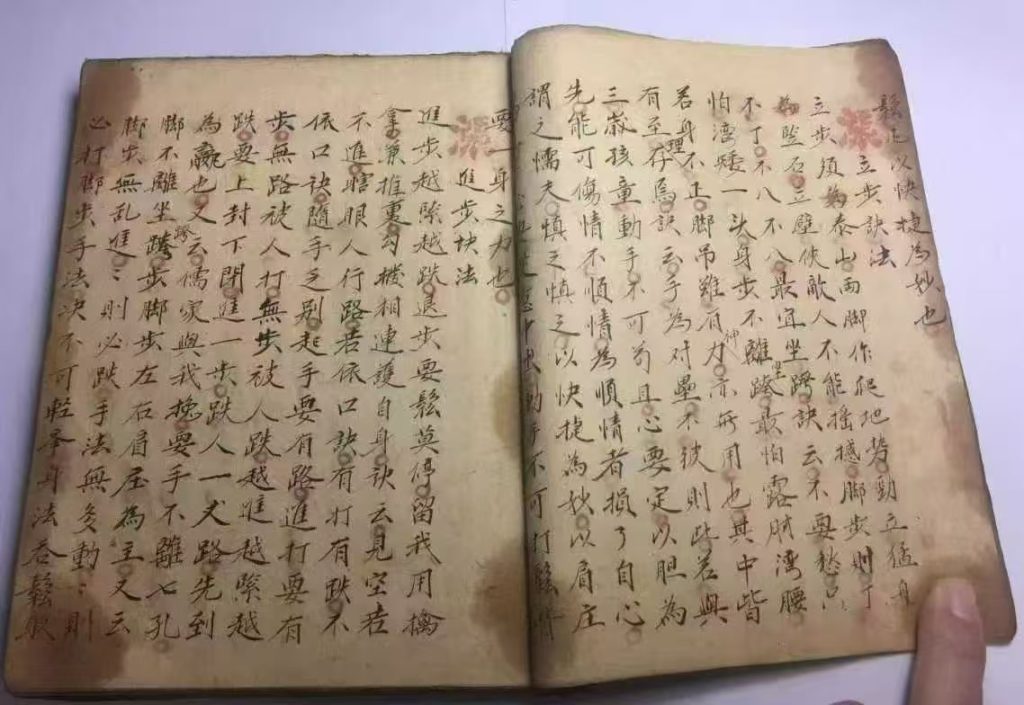 鬆足以快捷為妙也
立步訣法
立步須為泰山兩脚作爬地勢勁立猛身
為監石立壁使敵人不能搖撼脚步則丁
不丁不八不八最宜坐跨訣云不要愁只
怕湾矮一头身步不離跨最怕露肘湾腰
若身不正脚吊雖有力亦無用也其中皆
有至理存焉訣云手为对壘不彼則此若與
三歲孩童動手不可茍且心要定以胆為
先能可傷情不順情為順情者損了自心
謂之懦夫慎之慎之以快捷為妙以肩庄
要一身之力也
進步块法
進步越緊越跌退步要鬆莫停留我用擒
拿兼推裏勾機相連護自身訣云見空走
不進瞎眼人行路若依口訣有打有跌不
依口訣隨手乏别起手要有路進打要有
步無路被人打無步被人跌越進越緊越
跌要上封下閉進一步跌人一丈路先到
為贏也又云儒家與我挽要手不離七孔
脚不離坐跨步脚步左右肩庄為主又云
脚步無乱進〻則必跌手法無多動〻則
必打脚步手法决不可輕手身法吞鬆